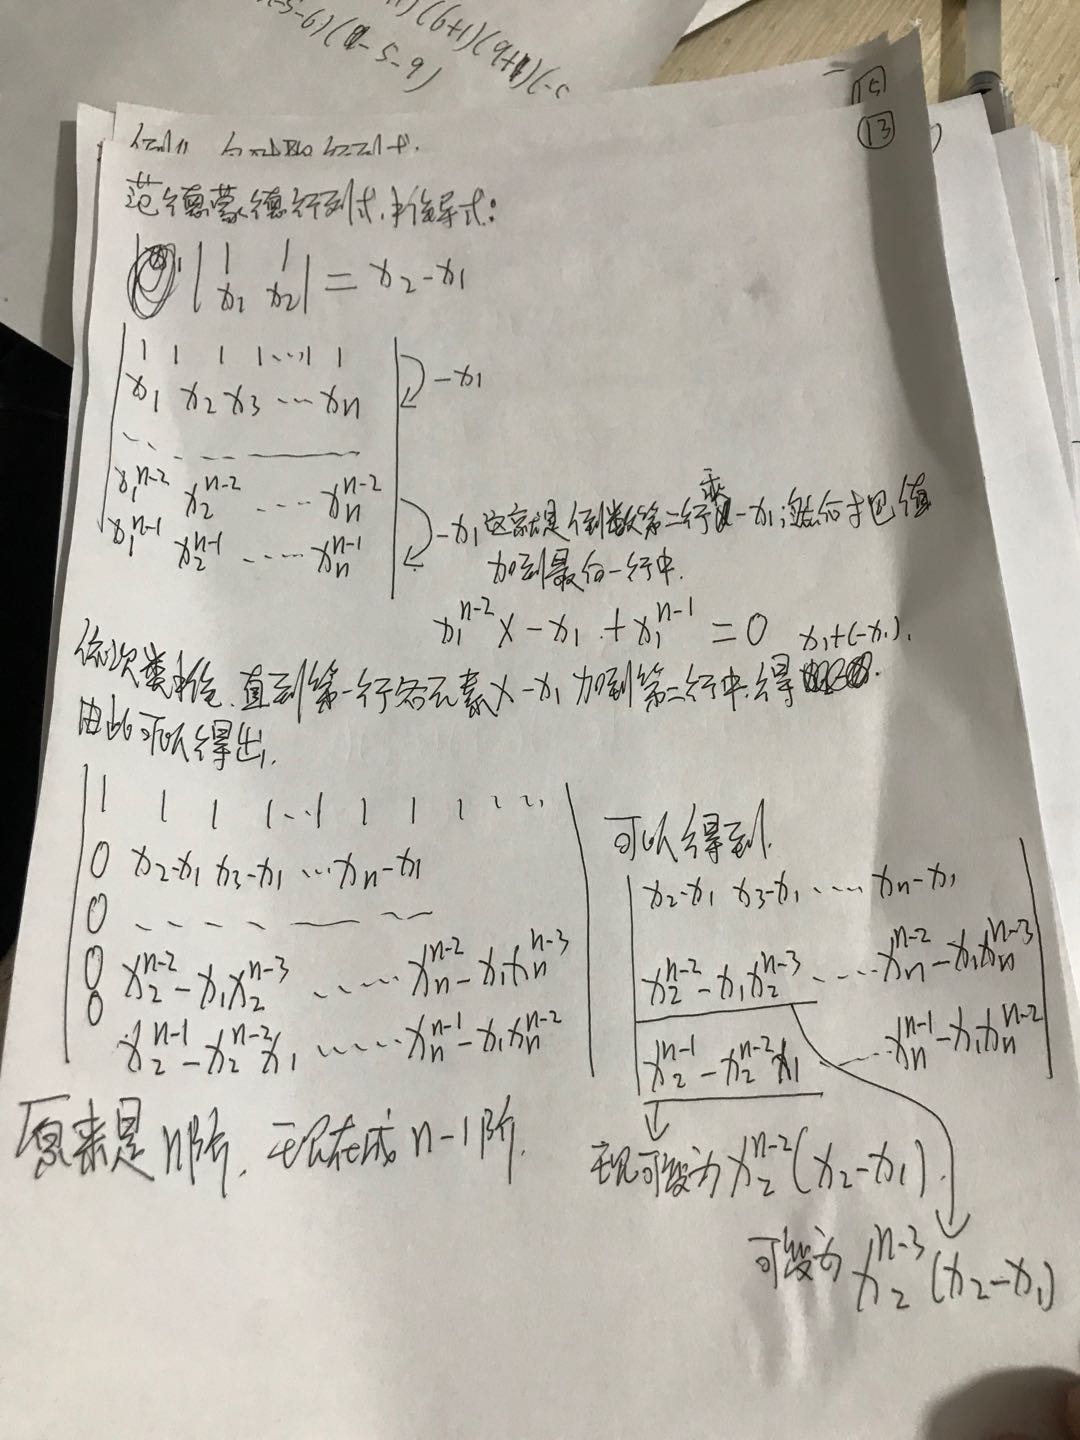 (6-5-6)
(6+1)(9+1)(-5
15
13
范德蒙德行列式.推导式:
| 1 1 |
| x₁ x₂ | = x₂-x₁
1 1 1 1...1 1
x₁ x₂ x₃ ... xₙ -x₁
x₁ⁿ⁻² x₂ⁿ⁻² ..... xₙⁿ⁻²
x₁ⁿ⁻¹ x₂ⁿ⁻¹ ..... xₙⁿ⁻¹
-x₁ 这就是倒数第二行乘-x₁,然后才把值
加到最后一行中.
x₁ⁿ⁻² x -x₁ + x₁ⁿ⁻¹ = 0 x₁+(-x₁).
依次类推.直到第一行各元素x-x₁加到第二行中.得
由此可以得出.
1 1 1 1...1 1 1 1 ....
0 x₂-x₁ x₃-x₁ ... xₙ-x₁
0
0 x₂ⁿ⁻²-x₁x₂ⁿ⁻³ ...... xₙⁿ⁻²-x₁xₙⁿ⁻³
0 x₂ⁿ⁻¹-x₂ⁿ⁻²x₁ ...... xₙⁿ⁻¹-x₁xₙⁿ⁻²
原来是n阶.现在成n-1阶.
可以得到.
x₂-x₁ x₃-x₁ ..... xₙ-x₁
x₂ⁿ⁻²-x₁x₂ⁿ⁻³ ..... xₙⁿ⁻²-x₁xₙⁿ⁻³
x₂ⁿ⁻¹-x₂ⁿ⁻²x₁ ..... xₙⁿ⁻¹-x₁xₙⁿ⁻²
现可变为x₂ⁿ⁻²(x₂-x₁).
可变为 x₂ⁿ⁻³(x₂-x₁)